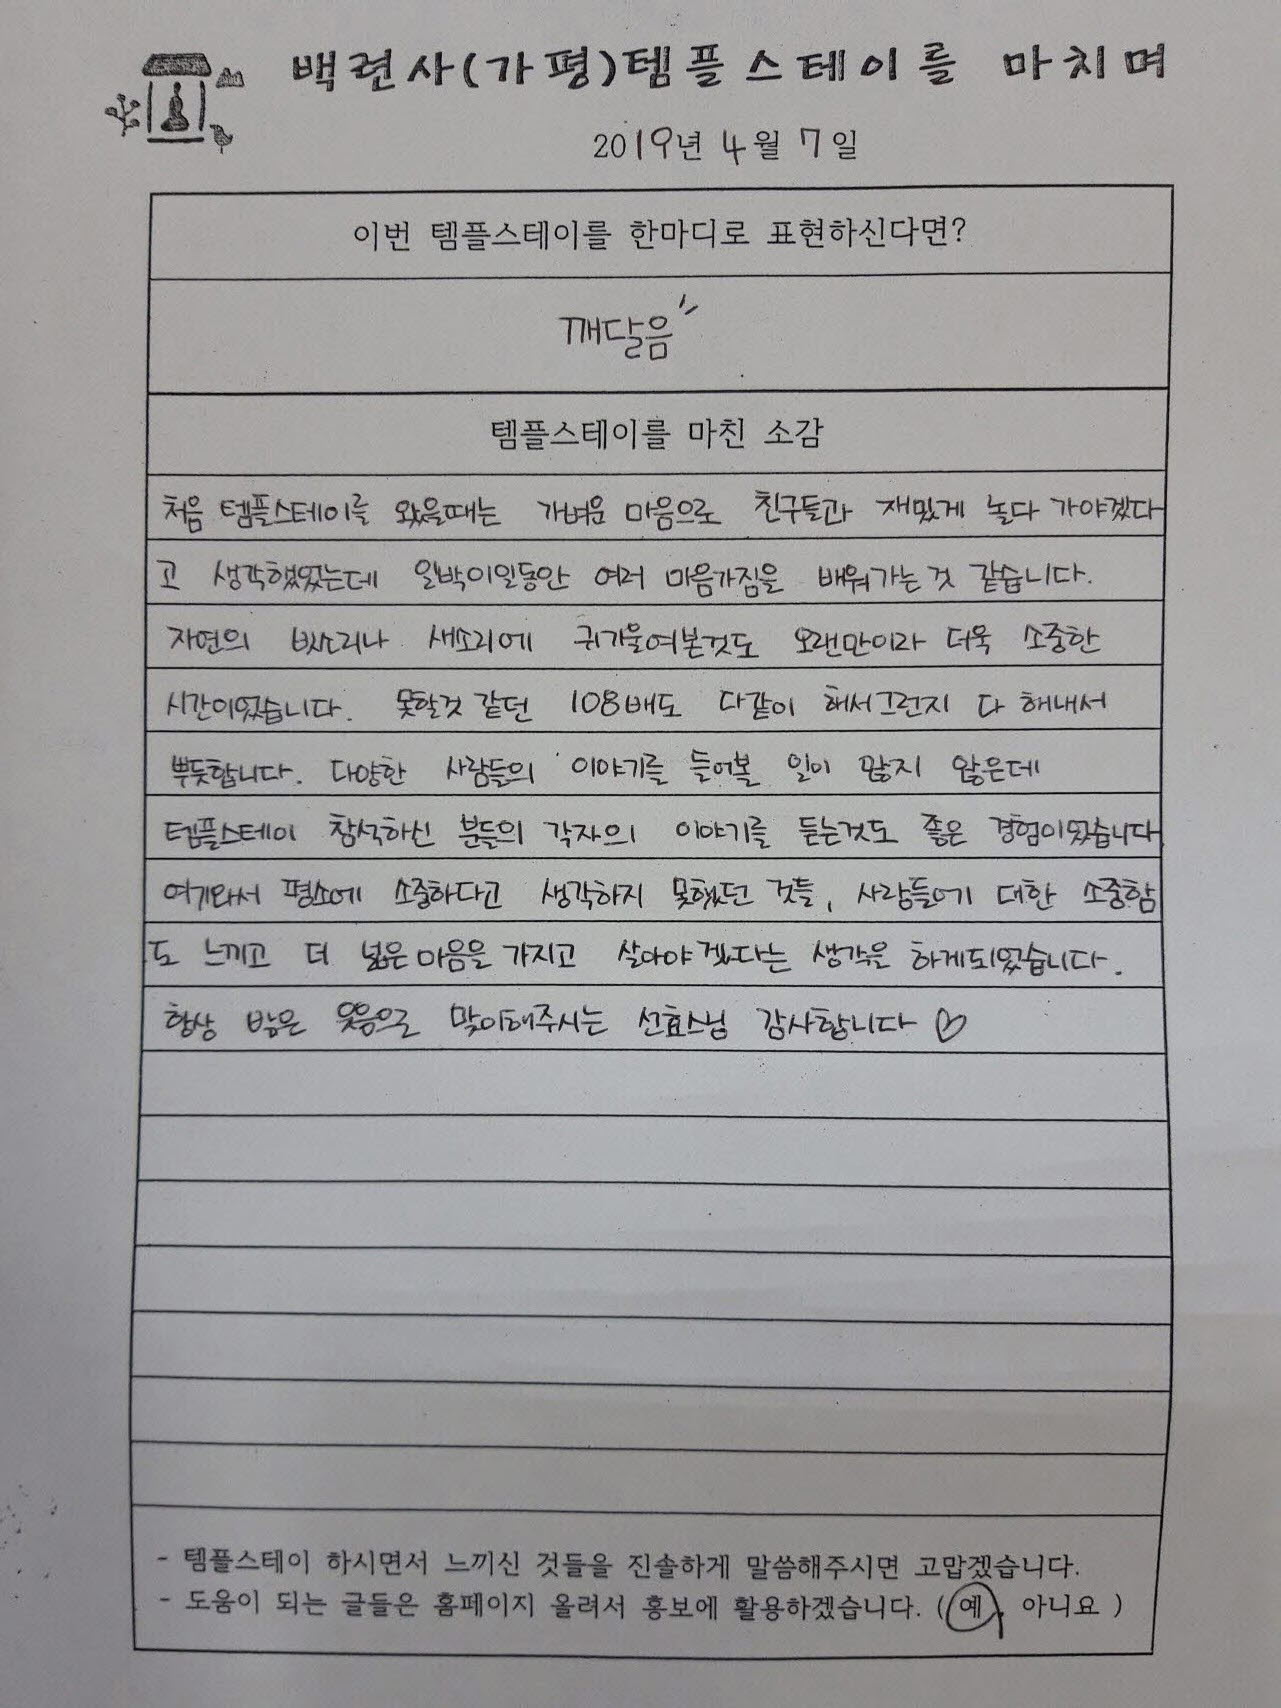 백련사(가평)템플스테이를 마치며
2019년 4월 7일
이번 템플스테이를 한마디로 표현하신다면?
깨달음
템플스테이를 마친 소감
처음 템플스테이를 왔을때는 가벼운 마음으로 친구들과 재밌게 놀다 가야겠다
고 생각했었는데 일박이일동안 여러 마음가짐을 배워가는것 같습니다.
자연의 빗소리나 새소리에 귀기울여본것도 오랜만이라 더욱 소중한
시간이었습니다. 못할것 같던 108배도 다같이 해서그런지 다 해내서
뿌듯합니다. 다양한 사람들의 이야기를 들어볼 일이 많지 않은데
템플스테이 참석하신 분들의 각자의 이야기를 듣는것도 좋은 경험이었습니다
여기와서 평소에 소중하다고 생각하지 못했던 것들, 사람들에 대한 소중함
도 느끼고 더 넓은 마음을 가지고 살아야겠다는 생각을 하게되었습니다.
항상 밝은 웃음으로 맞이해주시는 선효스님 감사합니다 ♡
- 템플스테이 하시면서 느끼신 것들을 진솔하게 말씀해주시면 고맙겠습니다.
- 도움이 되는 글들은 홈페이지 올려서 홍보에 활용하겠습니다. ( 예, 아니요 )